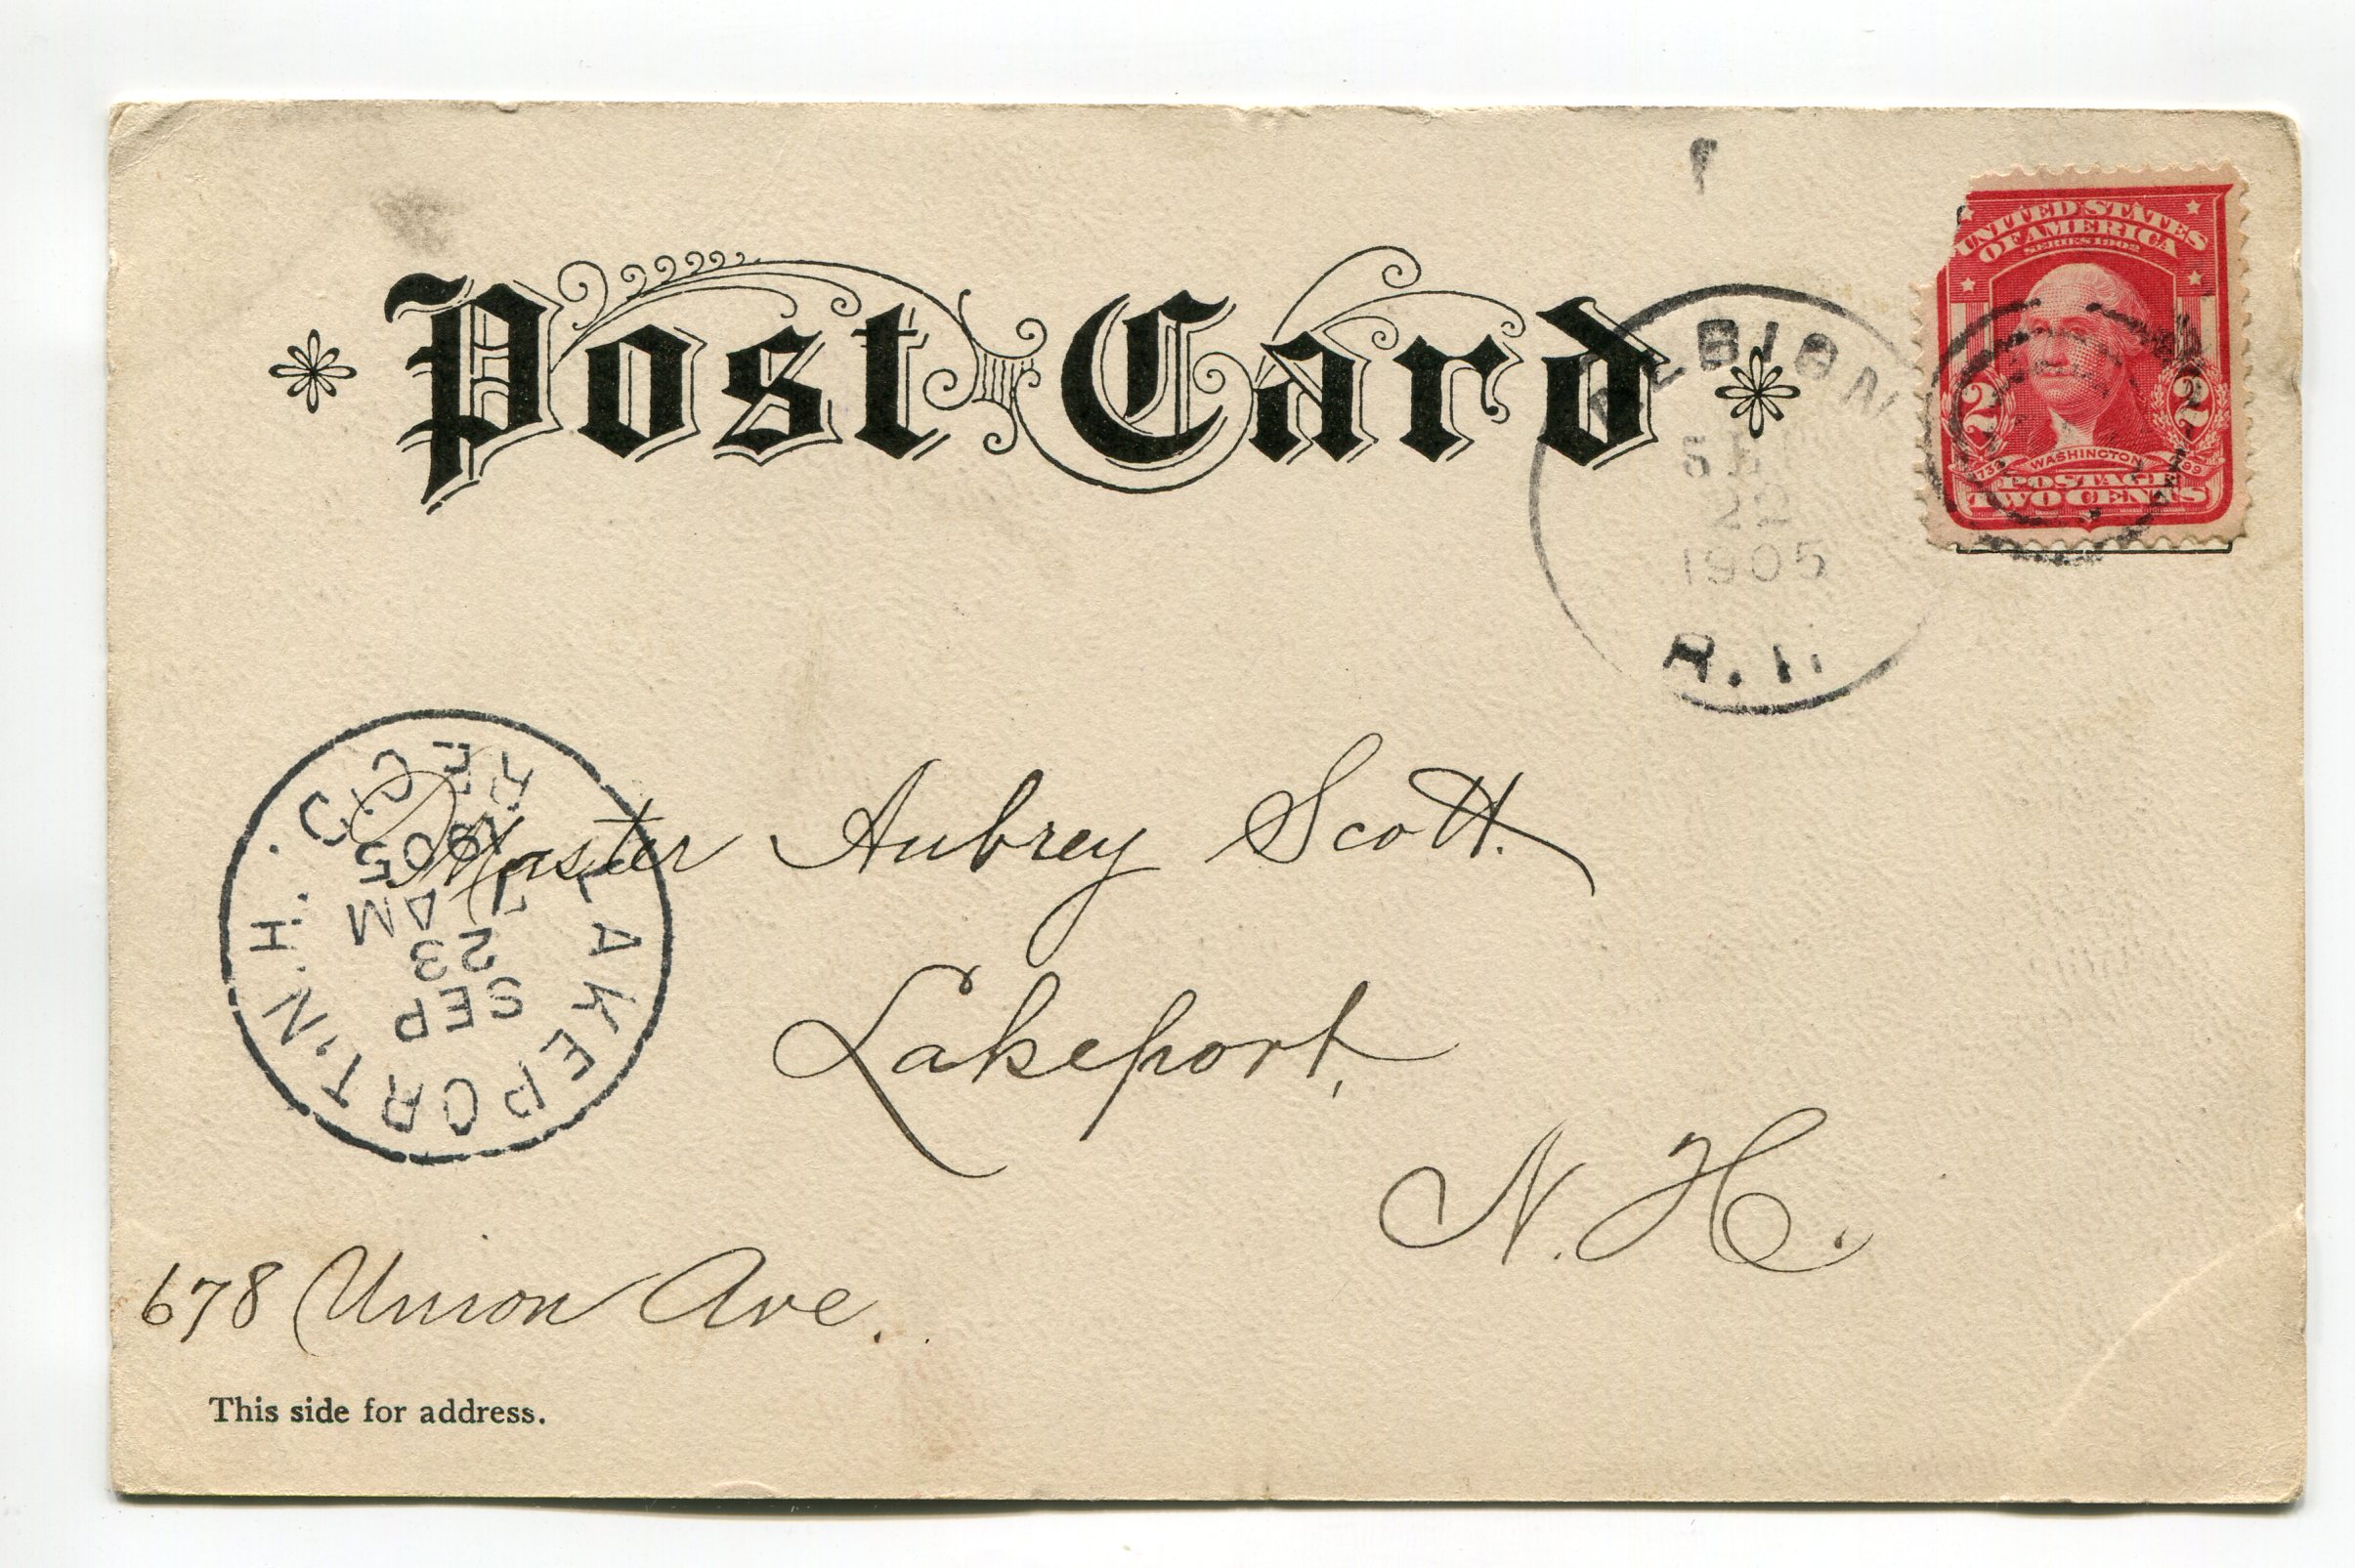 Post Card
UNITED STATES
OF AMERICA
SERIES 1902
2 2
WASHINGTON
POSTAGE
TWO CENTS
ALBION
SEP
22
1905
R.I.
Master Aubrey Scott.
Lakeport,
N.H.
LAKEPORT. N.H.
SEP
23
AM
1905
REC'D.
678 Union Ave.
This side for address.